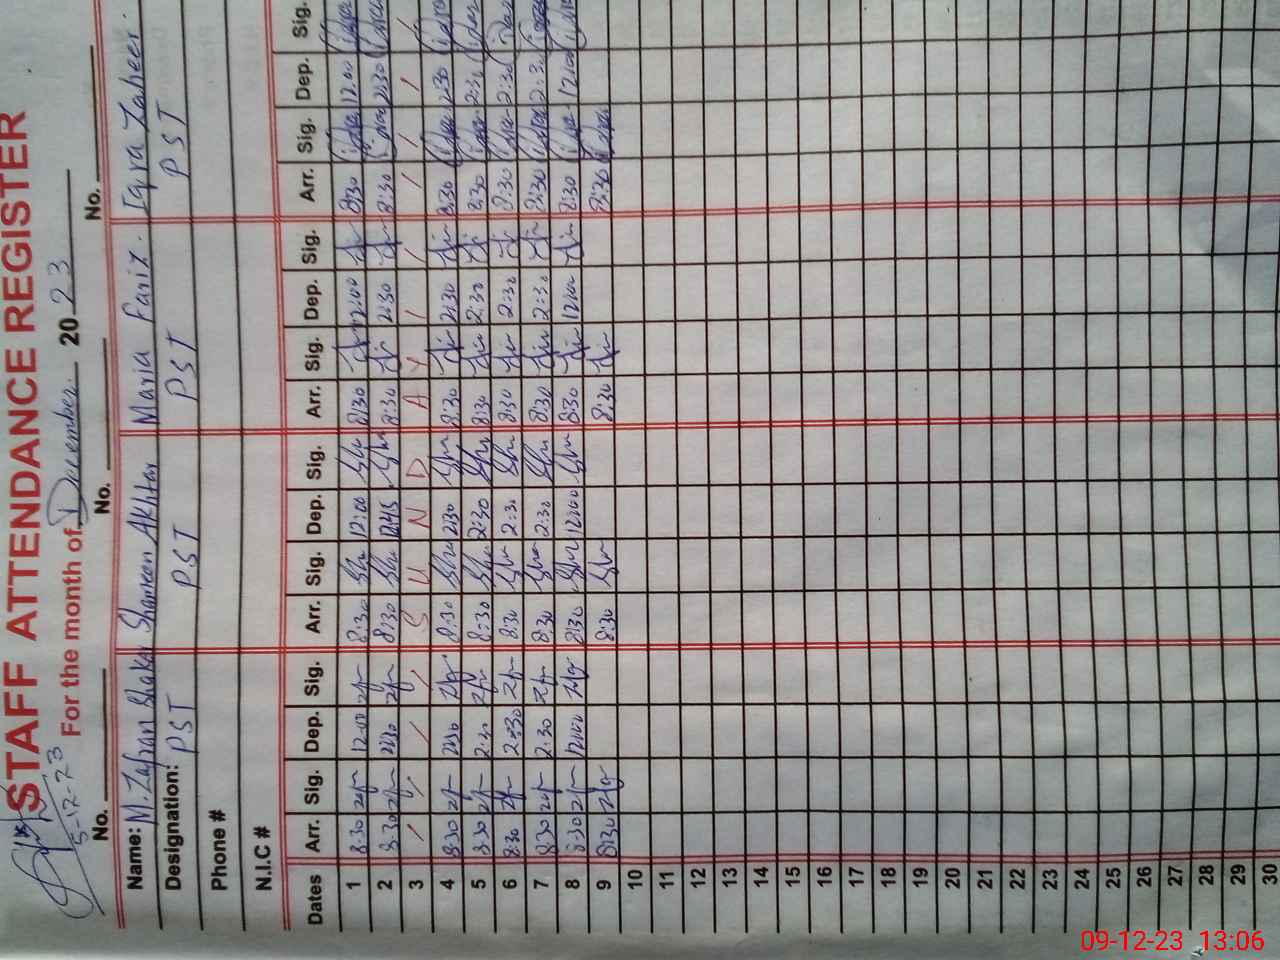 STAFF ATTENDANCE REGISTER
5-12-23
For the month of December 2023
No. No. No. No.
Name: M. Zafran Shaker Shamken Akhtar Maria Fariz. Iqra Zaheer
Designation: PST PST PST PST
Phone #
N.I.C #
Dates Arr. Sig. Dep. Sig. Arr. Sig. Dep. Sig. Arr. Sig. Dep. Sig. Arr. Sig. Dep. Sig.
1 8:30 12:00 8:30 12:00 8:30 12:00 8:30 12:00
2 8:30 2:30 8:30 12:45 8:30 2:30 8:30 2:30
3 / / / / S U N D A Y / / / / / /
4 8:30 2:30 8:30 2:30 8:30 2:30 8:30 2:30
5 8:30 2:30 8:30 2:30 8:30 2:30 8:30 2:30
6 8:30 2:30 8:30 2:30 8:30 2:30 8:30 2:30
7 8:30 2:30 8:30 2:30 8:30 2:30 8:30 2:30
8 8:30 12:00 8:30 12:00 8:30 12:00 8:30 12:00
9 8:30 8:30 8:30 8:30
10
11
12
13
14
15
16
17
18
19
20
21
22
23
24
25
26
27
28
29
30
09-12-23 13:06